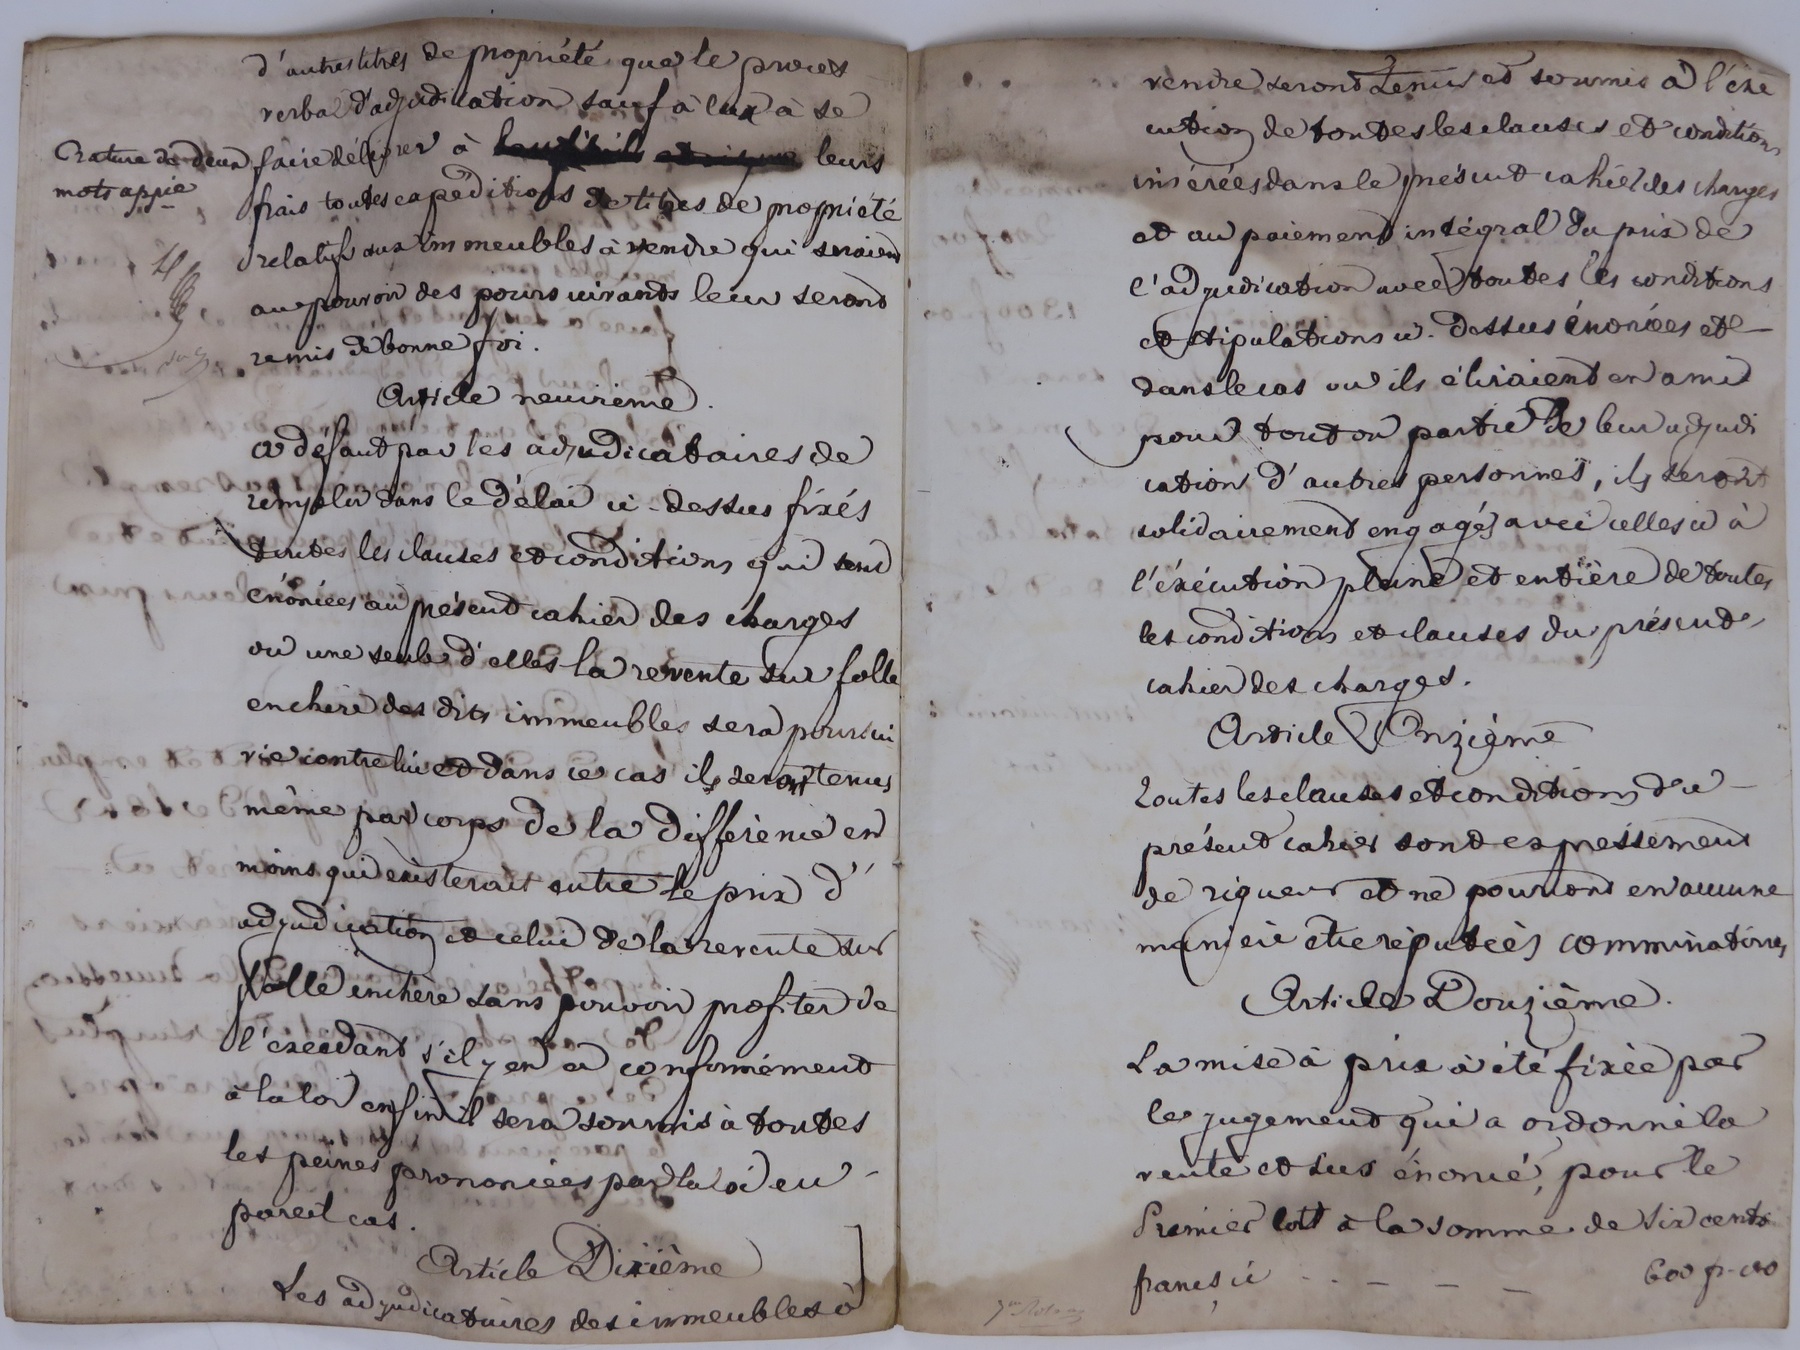 d'autres titres de propriété que le procès
verbal d'adjudication sauf à eux à se
faire délivrer à leurs
Rature de deux
mots appie
frais toutes expéditions de titres de propriété
relatifs aux immeubles à vendre qui seraient
au pouvoir des poursuivants leur seront
remis de bonne foi.
Article neuvième.
A défaut par les adjudicataires de
remplir dans le délai ci-dessus fixés
toutes les clauses et conditions qui sont
énoncées au présent cahier des charges
ou une seule d'elles la revente sur folle
enchère des dits immeubles sera poursui
vie contre lui et dans ce cas ils seront tenus
même par corps de la différence en
moins qui existerait entre le prix d'
adjudication et celui de la revente sur
folle enchère sans pouvoir profiter de
l'excédant s'il y en a conformément
à la loi enfin il sera soumis à toutes
les peines prononcées par la loi en
pareil cas.
Article Dixième
Les adjudicataires des immeubles à
vendre seront tenus et soumis à l'éxé
cution de toutes les clauses et conditions
insérées dans le présent cahier des charges
et au paiement intégral du prix de
l'adjudication avec toutes les conditions
et stipulations ci-dessus énoncées et
dans le cas ou ils éliraient en ami
pour tout ou partie de leur adjudi
cation d'autres personnes, ils seront
solidairement engagés avec celles ci à
l'éxécution pleine et entière de toutes
les conditions et clauses du présent
cahier des charges.
Article Onzième
Toutes les clauses et conditions du
présent cahier sont expressément
de rigueur et ne pourront en aucune
manière être réputées comminatoires
Article Douzième.
La mise à prix a été fixée par
le jugement qui a ordonné la
vente et sus énoncé, pour le
Premier lott à la somme de six cents
francs ci - - - - 600 fr. 00